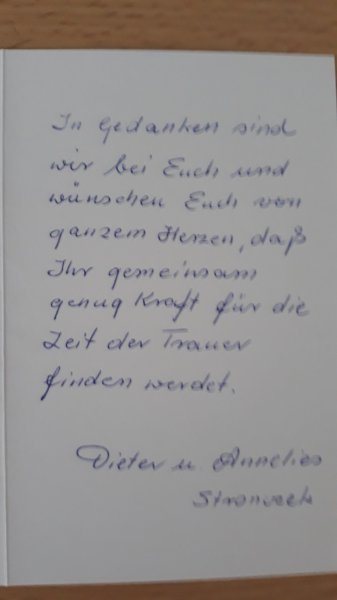 In Gedanken sind
wir bei Euch und
wünschen Euch von
ganzem Herzen, daß
Ihr gemeinsam
genug Kraft für die
Zeit der Trauer
finden werdet.
Dieter u. Annelies